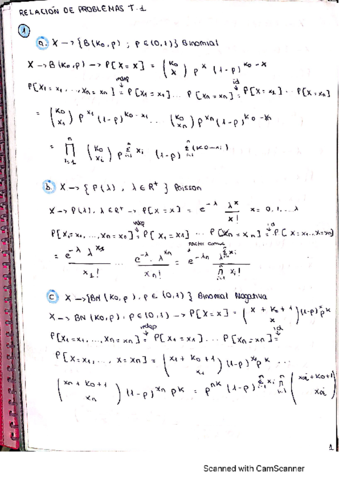 RELACIÓN DE PROBLEMAS T.1
1
a. X → {B(k₀,p) ; p∈(0,1)} Binomial
X → B(k₀,p) → P[X=x] = (k₀ x) p^x (1-p)^(k₀-x)
P[X₁=x₁, ..., Xn=xn] = indep P[X₁=x₁] ... P[Xn=xn] = id P[X=x₁] ... P[X=xn]
= (k₀ x₁) p^x₁ (1-p)^(k₀-x₁) ... (k₀ xn) p^xn (1-p)^(k₀-xn)
= ∏ⁿᵢ₌₁ (k₀ xᵢ) p^(Σⁿᵢ₌₁ xᵢ) (1-p)^(Σⁿᵢ₌₁ (k₀-xᵢ))
b. X → {P(λ), λ∈ℝ⁺} Poisson
X → P(λ), λ∈ℝ⁺ → P[X=x] = e^-λ λ^x / x! x=0,1,...
P[X₁=x₁, ..., Xn=xn] = indep P[X₁=x₁] ... P[Xn=xn] = id P[X=x₁...X=xn]
= e^-λ λ^x₁ / x₁! ... e^-λ · λ^xn / xn! = factor común e^-λn λ^(Σⁿᵢ₌₁ xᵢ) / ∏ⁿᵢ₌₁ xᵢ!
c. X → {BN(k₀,p), p∈(0,1)} Binomial Negativa
X → BN(k₀,p), p∈(0,1) → P[X=x] = (x+k₀+1 x) (1-p)^x p^k
P[X₁=x₁, ..., Xn=xn] = indep P[X₁=x₁] ... P[Xn=xn] = id
P[X=x₁, ..., X=xn] = (x₁+k₀+1 x₁) (1-p)^x₁ p^k ...
(xn+k₀+1 xn) (1-p)^xn p^k = p^nk (1-p)^(Σⁿᵢ₌₁ xᵢ) ∏ⁿᵢ₌₁ (xᵢ+k₀+1 xᵢ)
1
Scanned with CamScanner